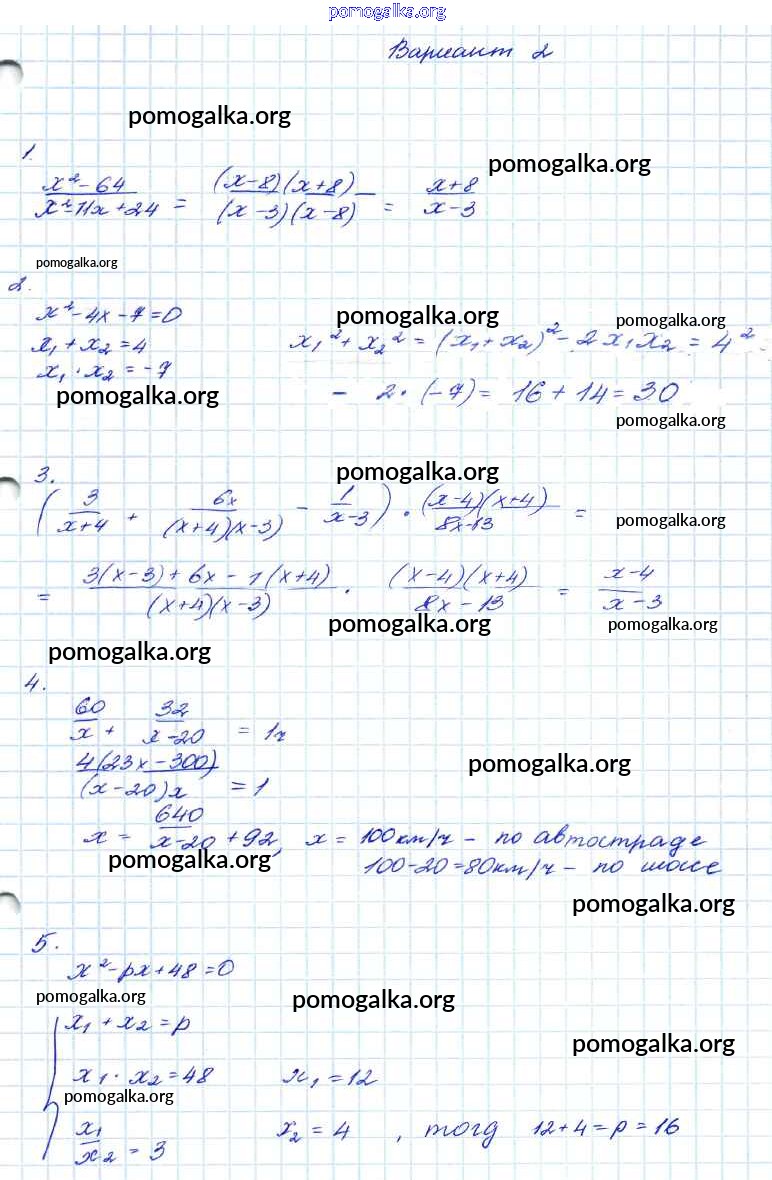 pomogalka.org
Вариант 2
pomogalka.org
1.
pomogalka.org
(x²-64)/(x²-11x+24) = ((x-8)(x+8))/((x-3)(x-8)) = (x+8)/(x-3)
pomogalka.org
2.
x²-4x-7=0
pomogalka.org pomogalka.org
x₁+x₂=4
x₁²+x₂²=(x₁+x₂)²-2x₁x₂=4²
x₁·x₂=-7
pomogalka.org
- 2·(-7)=16+14=30
pomogalka.org
3.
pomogalka.org
(3/(x+4) + 6x/((x+4)(x-3)) - 1/(x-3))·((x-4)(x+4))/(8x-13) =
pomogalka.org
= (3(x-3)+6x-1(x+4))/((x+4)(x-3)) · ((x-4)(x+4))/(8x-13) = (x-4)/(x-3)
pomogalka.org pomogalka.org
pomogalka.org
4.
60/x + 32/(x-20) = 1ч
pomogalka.org
4(23x-300)/((x-20)x) = 1
x = 640/(x-20) + 92, x = 100км/ч - по автостраде
pomogalka.org
100-20=80км/ч - по шоссе
pomogalka.org
5.
x²-px+48=0
pomogalka.org pomogalka.org
{ x₁+x₂=p
pomogalka.org
x₁·x₂=48 x₁=12
pomogalka.org
x₁/x₂=3 x₂=4, тогд 12+4=p=16